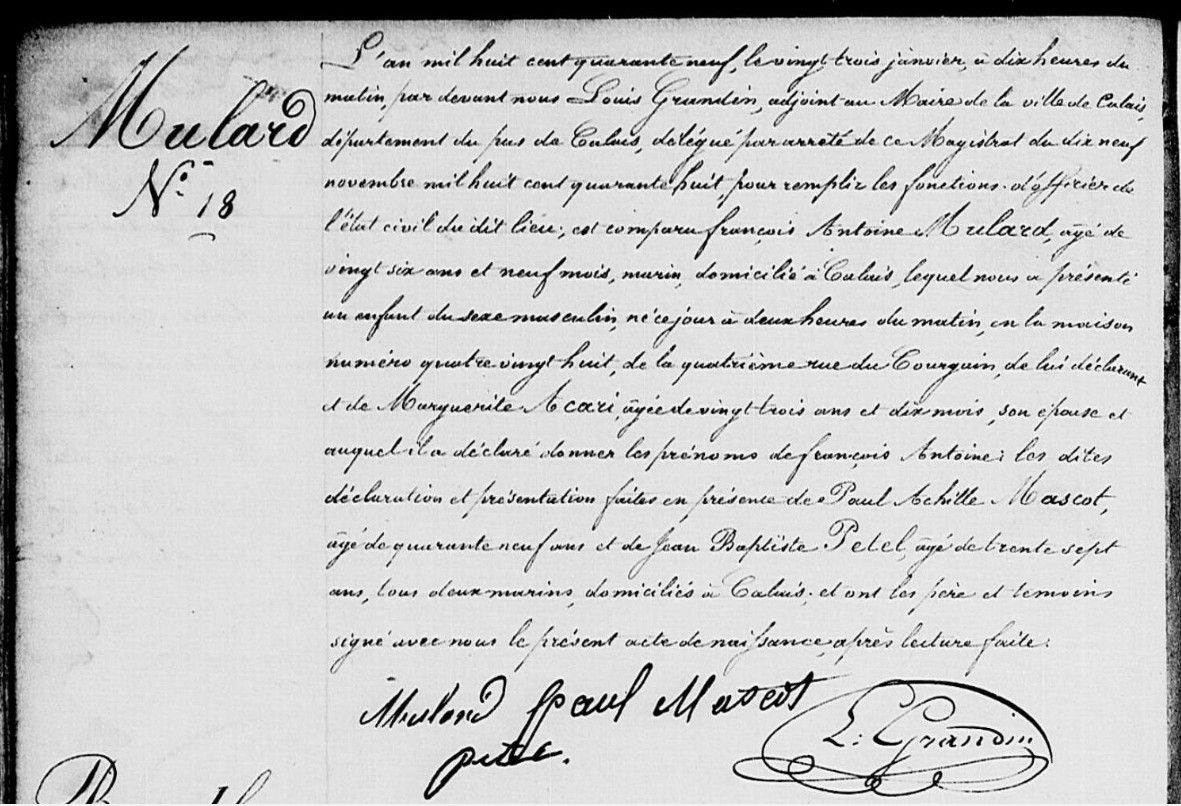 Mulard
N.° 18
L'an mil huit cent quarante neuf, le vingt trois janvier, à dix heures du
matin, par devant nous Louis Grandin, adjoint au Maire de la ville de Calais,
département du pas de Calais, délégué par arrêté de ce Magistrat du dix neuf
novembre mil huit cent quarante huit pour remplir les fonctions d'officier de
l'état civil du dit lieu, est comparu françois Antoine Mulard, âgé de
vingt six ans et neuf mois, marin, domicilié à Calais, lequel nous a présenté
un enfant du sexe masculin, né ce jour à deux heures du matin, en la maison
numéro quatre vingt huit, de la quatrième rue du Courgain, de lui déclarant
et de Marguerite Acari, âgée de vingt trois ans et dix mois, son épouse et
auquel il a déclaré donner les prénoms de françois Antoine: les dites
déclaration et présentation faites en présence de Paul Achille Mascot,
âgé de quarante neuf ans et de Jean Baptiste Petel, âgé de trente sept
ans, tous deux marins, domiciliés à Calais; et ont les père et témoins
signé avec nous le présent acte de naissance, après lecture faite.
Mulard paul Mascot
L: Grandin